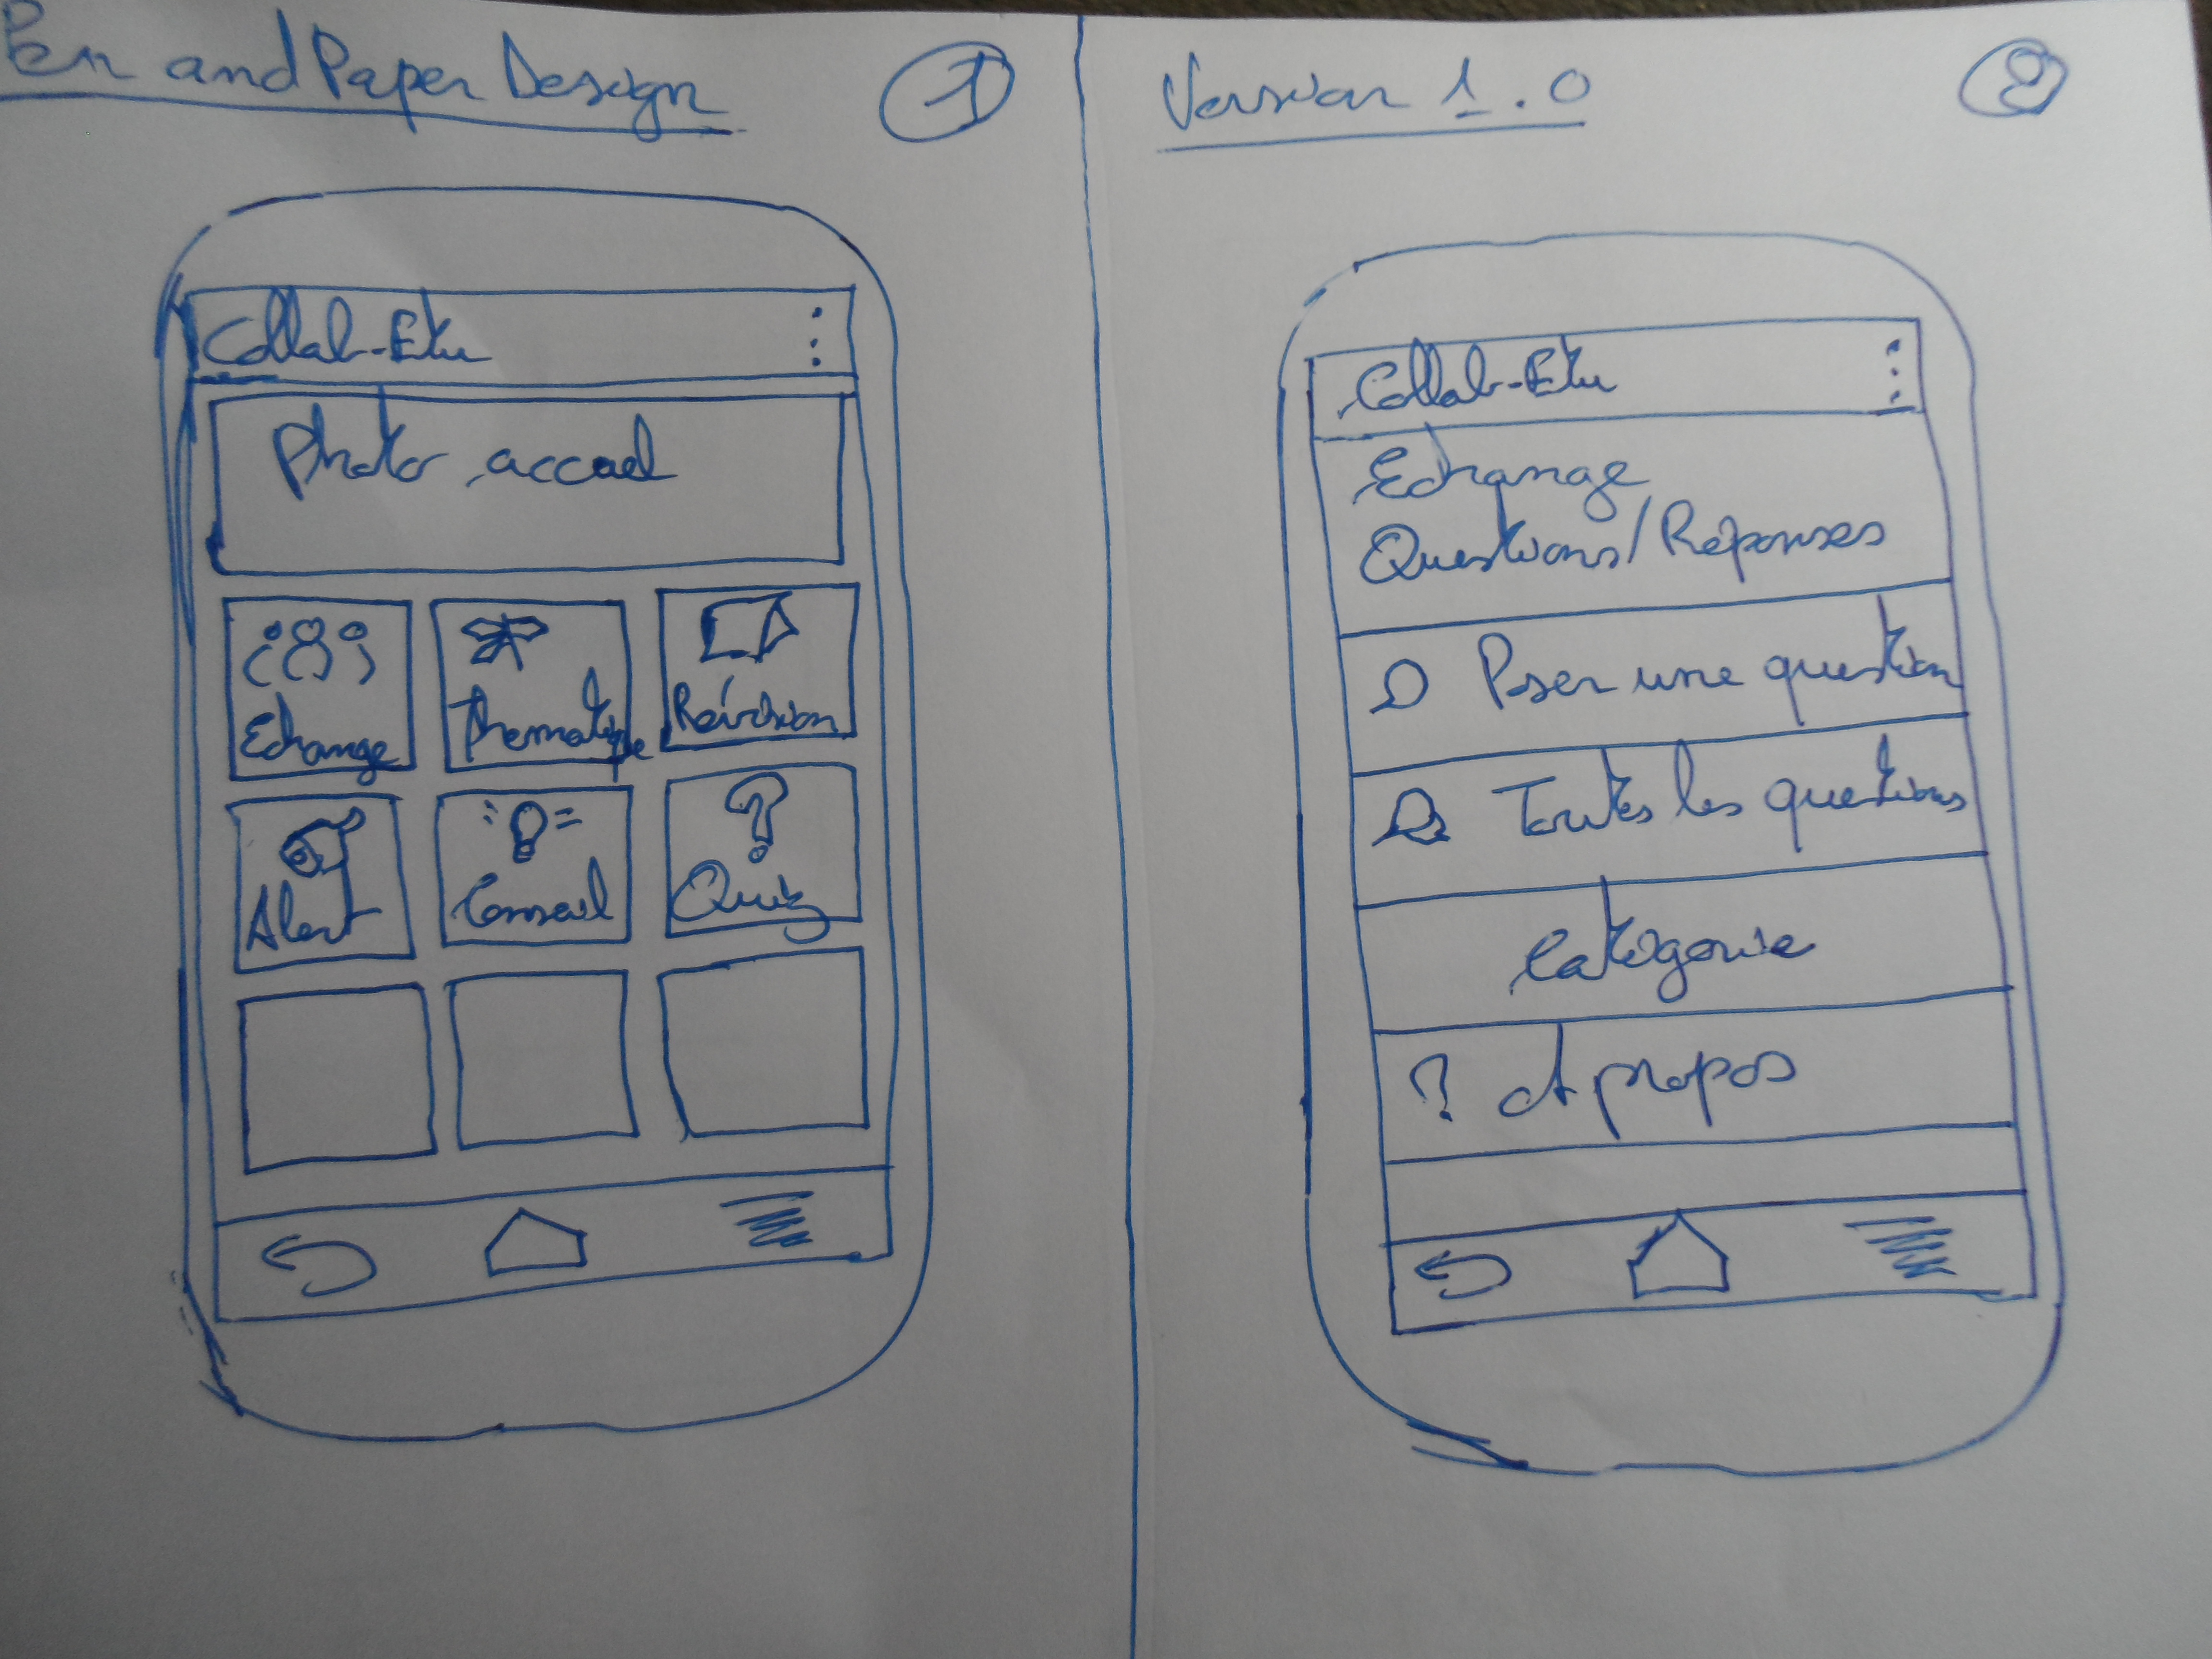 Pen and Paper Design
1
Collab-Etu
Photo accueil
Echange
Thematique
Révision
Alert
Conseil
Quiz
Version 1.0
2
Collab-Etu
Echange
Questions/Réponses
Poser une question
Toutes les questions
Catégorie
? A propos